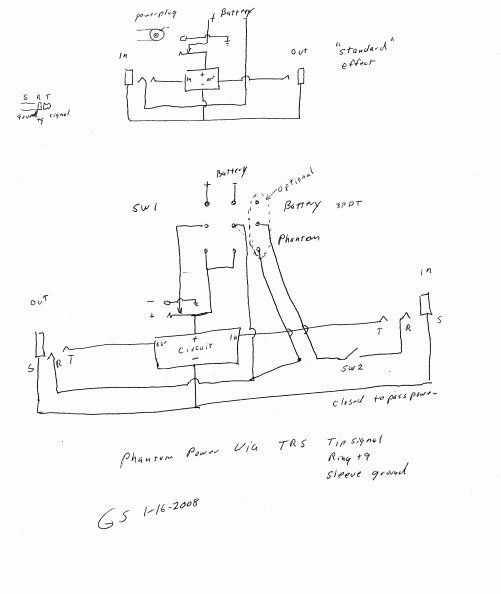 power plug
+ Battery
In
Out
"standard"
effect
+
In out
-
S R T
ground tq signal
Battery
+ -
optional
SW1
Battery 3PDT
Phantom
In
Out
-
+
+
out Circuit In
-
T
R
S
T
R
S
SW2
closed to pass power
Phantom Power Via TRS Tip signal
Ring +9
Sleeve ground
GS 1-16-2008